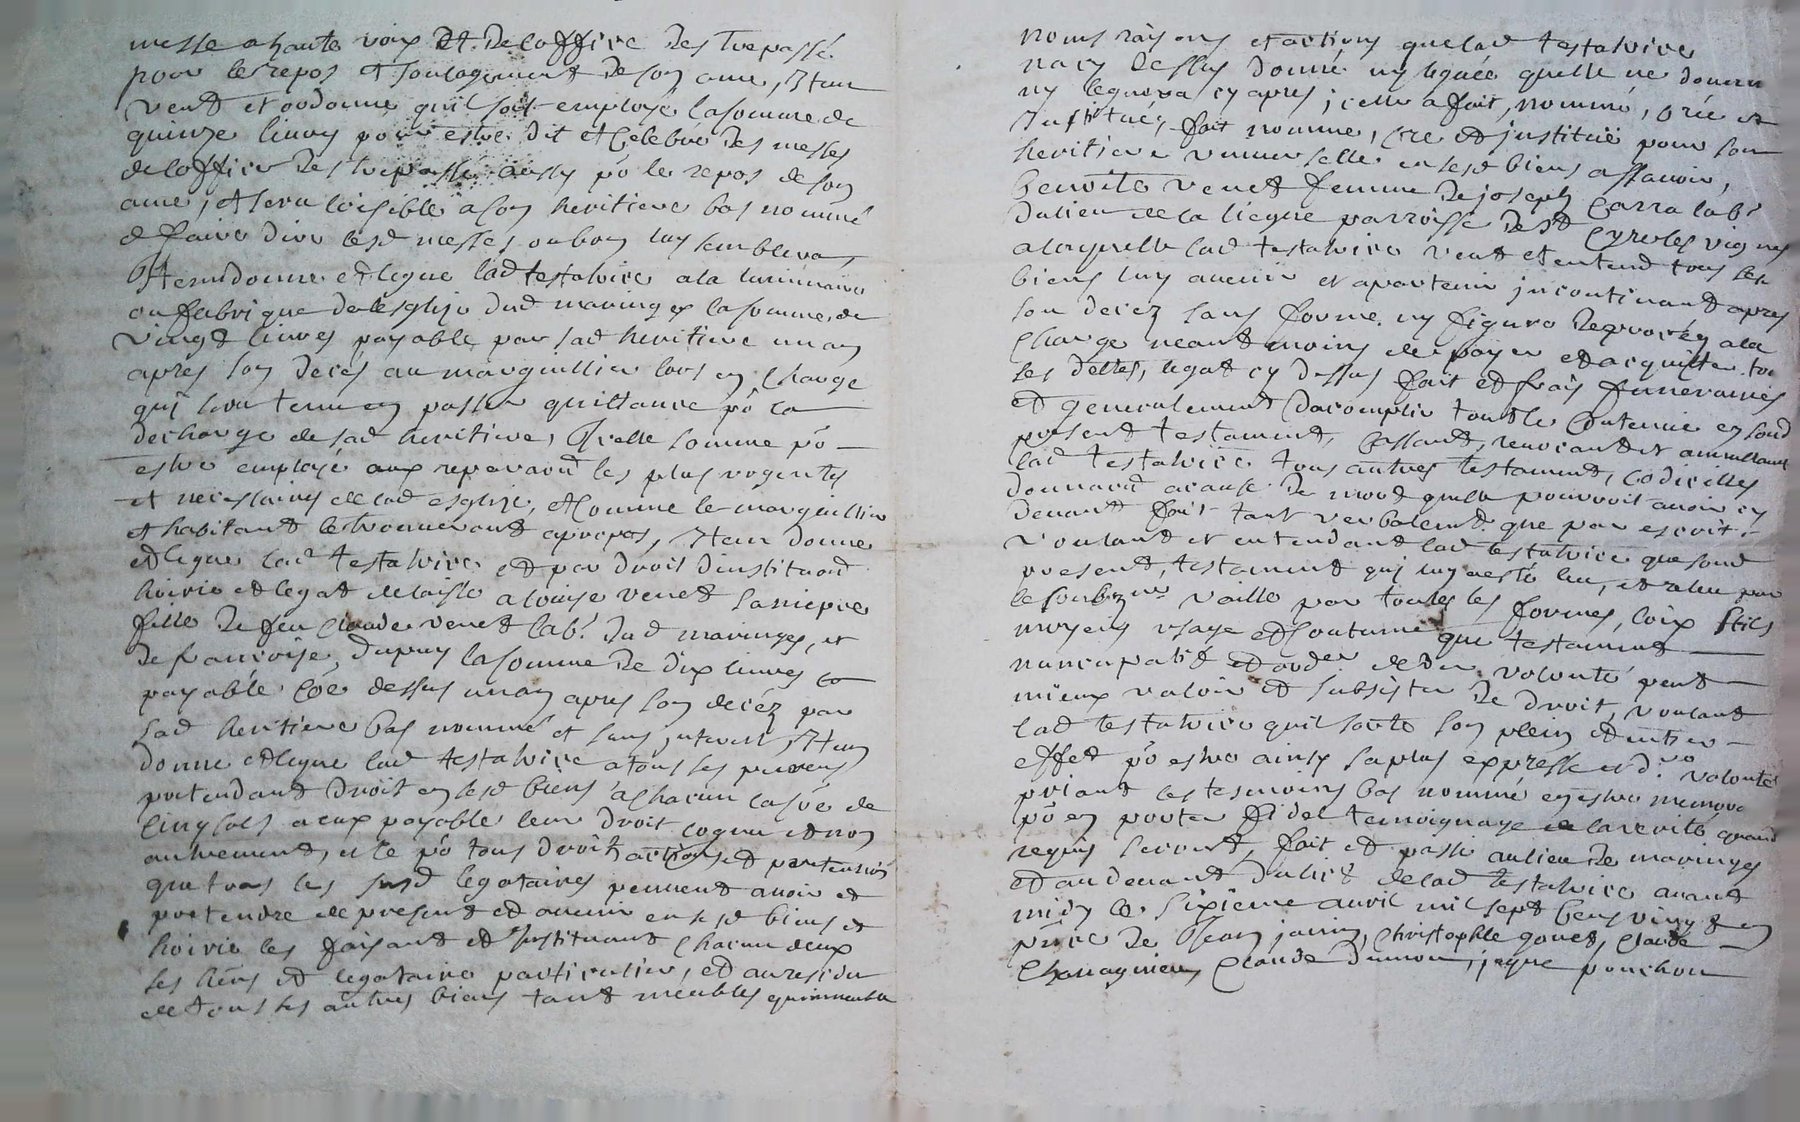 messe a haute voix et de loffice des trepassé
pour le repos et soulagement de son ame, Item
veut et ordonne quil soit employé la somme de
quinze livres pour estre dit et celebre des messes
de loffice des trepassé aussy po le repos de son
ame, et sera loisible a son heritiere bas nommé
de faire dire lesd messes ou bon luy semblera
Item donne et legue lad testatrice a la luminaire
ou fabrique de lesglise dud maringes la somme de
vingt livres payable par sad heritiere un an
apres son decés au marguillier lors en charge
quj sera tenu en passer quittance po la
decharge de sad heritiere, Icelle somme po
estre employé aux reparaons les plus urgentes
et necessaires de lad esglise, et comme le marguillier
et habitant le trouveront apropos, Item donne
et legue lad testatrice et par droit dinstituaon
hoirie et legat delaisse a louise venet sa niepce
fille de feu Claude venet lab. dud maringes, et
de francoise dupuy la somme de dix livres
payable coe dessus un an apres son decéz par
sad heritiere bas nommé et sans interest, Item
donne et legue lad testatrice a tous ses parens
pretendant droit en sesd biens a chacun la soe de
cinq sols a eux payable leur droit cognu et non
autrement, et ce po tous droit actions et pretensions
que tous les susd legataires peuvent avoir et
pretendre de present et avenir en sesd biens et
hoirie les faisant et Instituant chacun deux
ses hers et legataire particulier, et au residu
de tous ses autres biens tant meubles quimmeuble
noms raisons et actions que lad testatrice
na cy dessus donné ny legué quelle ne donera
ny leguera cy apres, icelle a fait, nommé, créé et
Institué, fait nomme, cre et jnstitue pour son
heritiere universelle en sesd biens assavoir,
benoite venet femme de joseph Carra lab.
du lieu de la liegue parroisse de St Cyre les vignes
a laquelle lad testatrice veut et entend tous ses
biens luy avenir et apartenir jncontinant apres
son decez sans forme ny figure de procés a la
charge neantmoins de payer et acquitter
ses dettes, legat cy dessus fait et frais funeraires
et generalement dacomplir tout le contenue en sond
present testament, cassant, revocant et annullant
lad testatrice tous autres testament, codicilles
donnaon a cause de mort quelle pourroit avoir cy
devant fait tant verbalemt que par escrit.
voulant et entendant lad testatrice que sond
present, testament quj luy a esté leu, et releu par
le soubz ne vaille par toutes les formes, loix stils
moyens usage et coutumes que testament
nuncupatif et order de der volonté peut
mieux valoir et subsister de droit, voulant
lad testatrice quil sorte son plein et entier
effet po estre ainsy sa plus expresse et d. volonté
priant les tesmoins bas nommé en estre memora
po en porter fidel temoignage de la verité quand
requis seront, fait et passé au lieu de maringes
et au devant du lict de lad testatrice avant
midy le sixieme avril mil sept cens vingt
pnce de Jean janin, Christophle gouet, Claude
Chavagnieu, Claude dumon, jaque ponchon